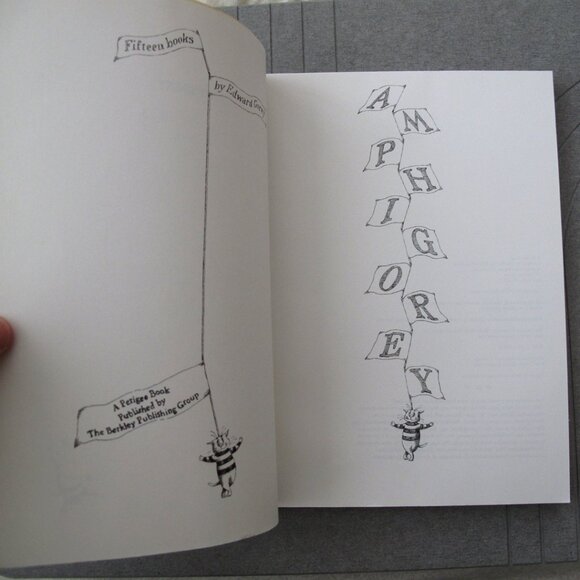 Fifteen books
by Edward
A Perigee Book
Published by
The Berkley Publishing Group
AMPHIGOREY